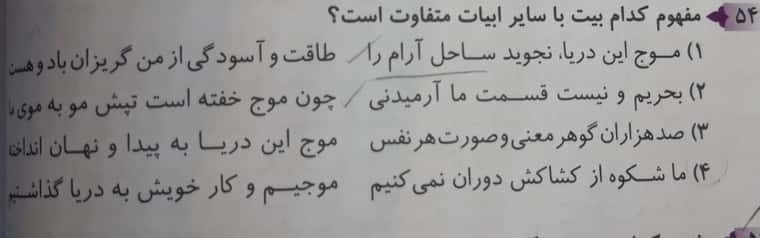 ۵۴ مفهوم کدام بیت با سایر ابیات متفاوت است؟
۱) مـوج این دریا، نجوید سـاحل آرام را طاقت و آسودگی از من گریزان باد و هست
۲) بحریم و نیست قسـمت ما آرمیدنی چون موج خفته است تپش مو به موی
۳) صد هزاران گوهر معنی و صورت هر نفس موج این دریـا به پیدا و نهـان
۴) ما شـکوه از کشاکش دوران نمی‌کنیم موجیـم و کار خویش به دریا